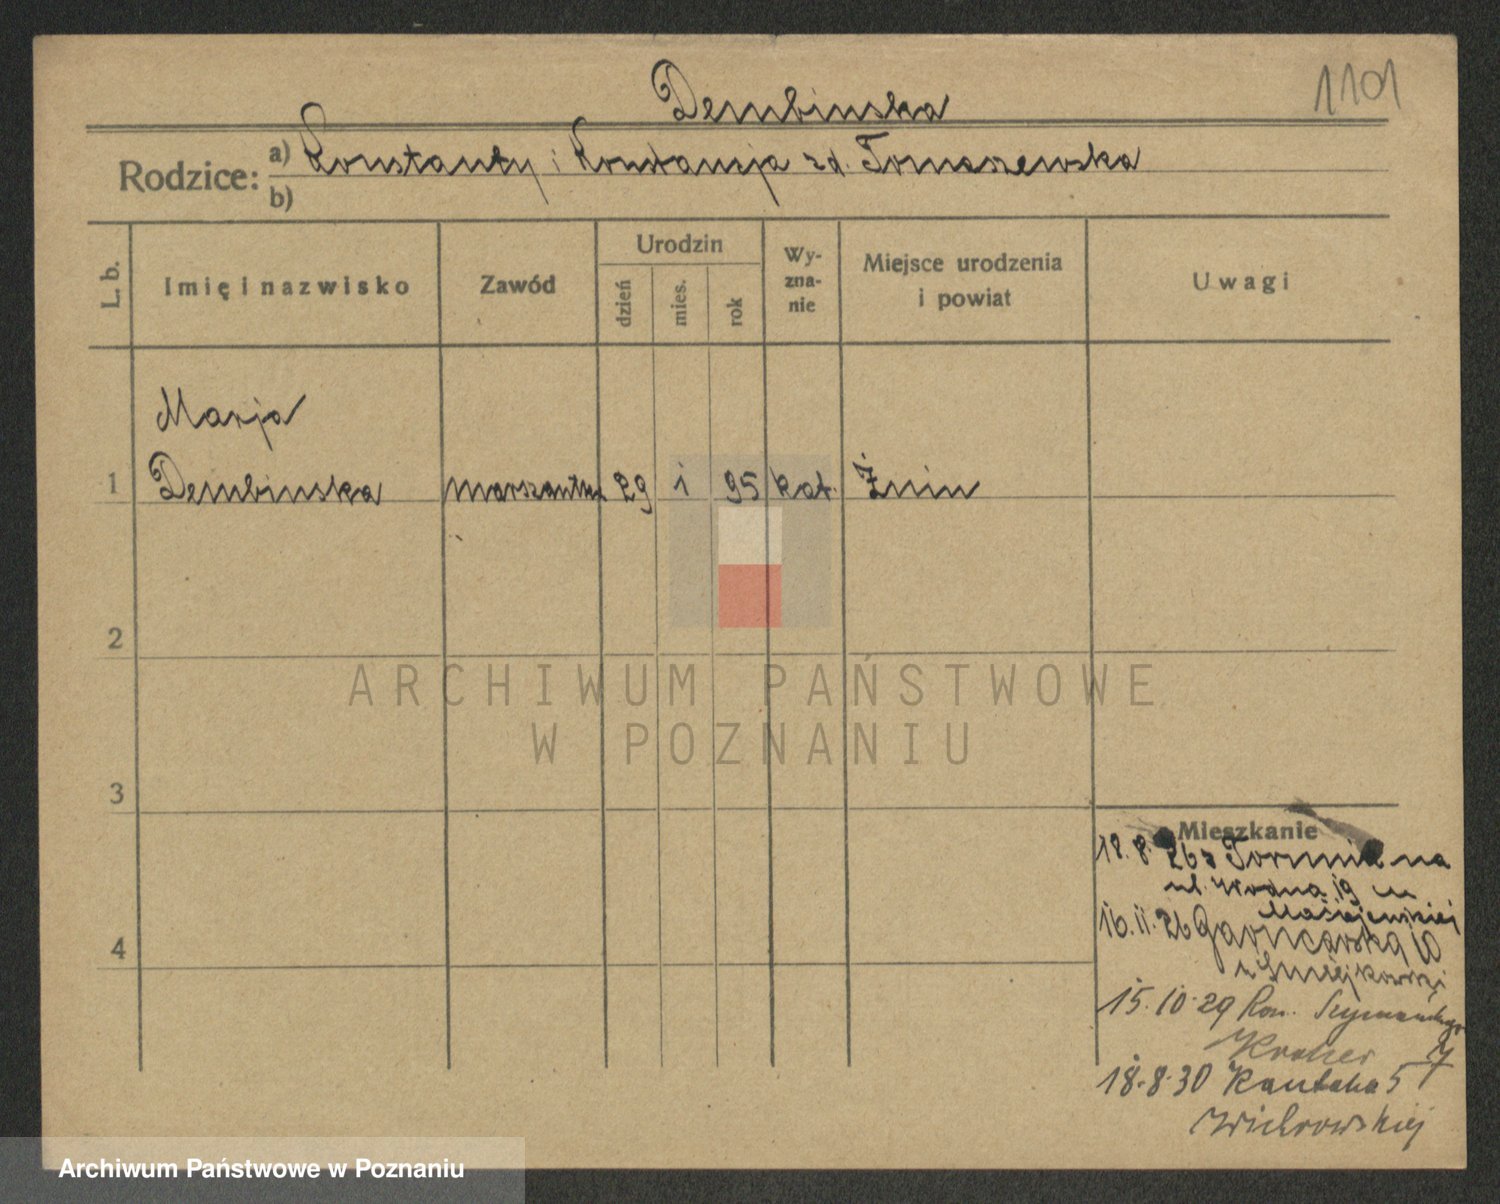 1101
Dembinska
Rodzice: a) Konstanty i Konstancja zd. Tomaszewska
b)
L. b. Imię i nazwisko Zawód Urodzin dzień mies. rok Wyznanie Miejsce urodzenia i powiat Uwagi
Marja
1 Dembinska 29 i 95 kat. Żnin
2
ARCHIWUM PAŃSTWOWE
W POZNANIU
3
Mieszkanie
18.8. 26 z Torunia na
ul. Wodna 19 u
Maciejewskiej
16.11.26 Garncarska 10
15.10.29 Szymańskiego
7
18.8.30 Kantaka 5
Wichrowskiej
Archiwum Państwowe w Poznaniu